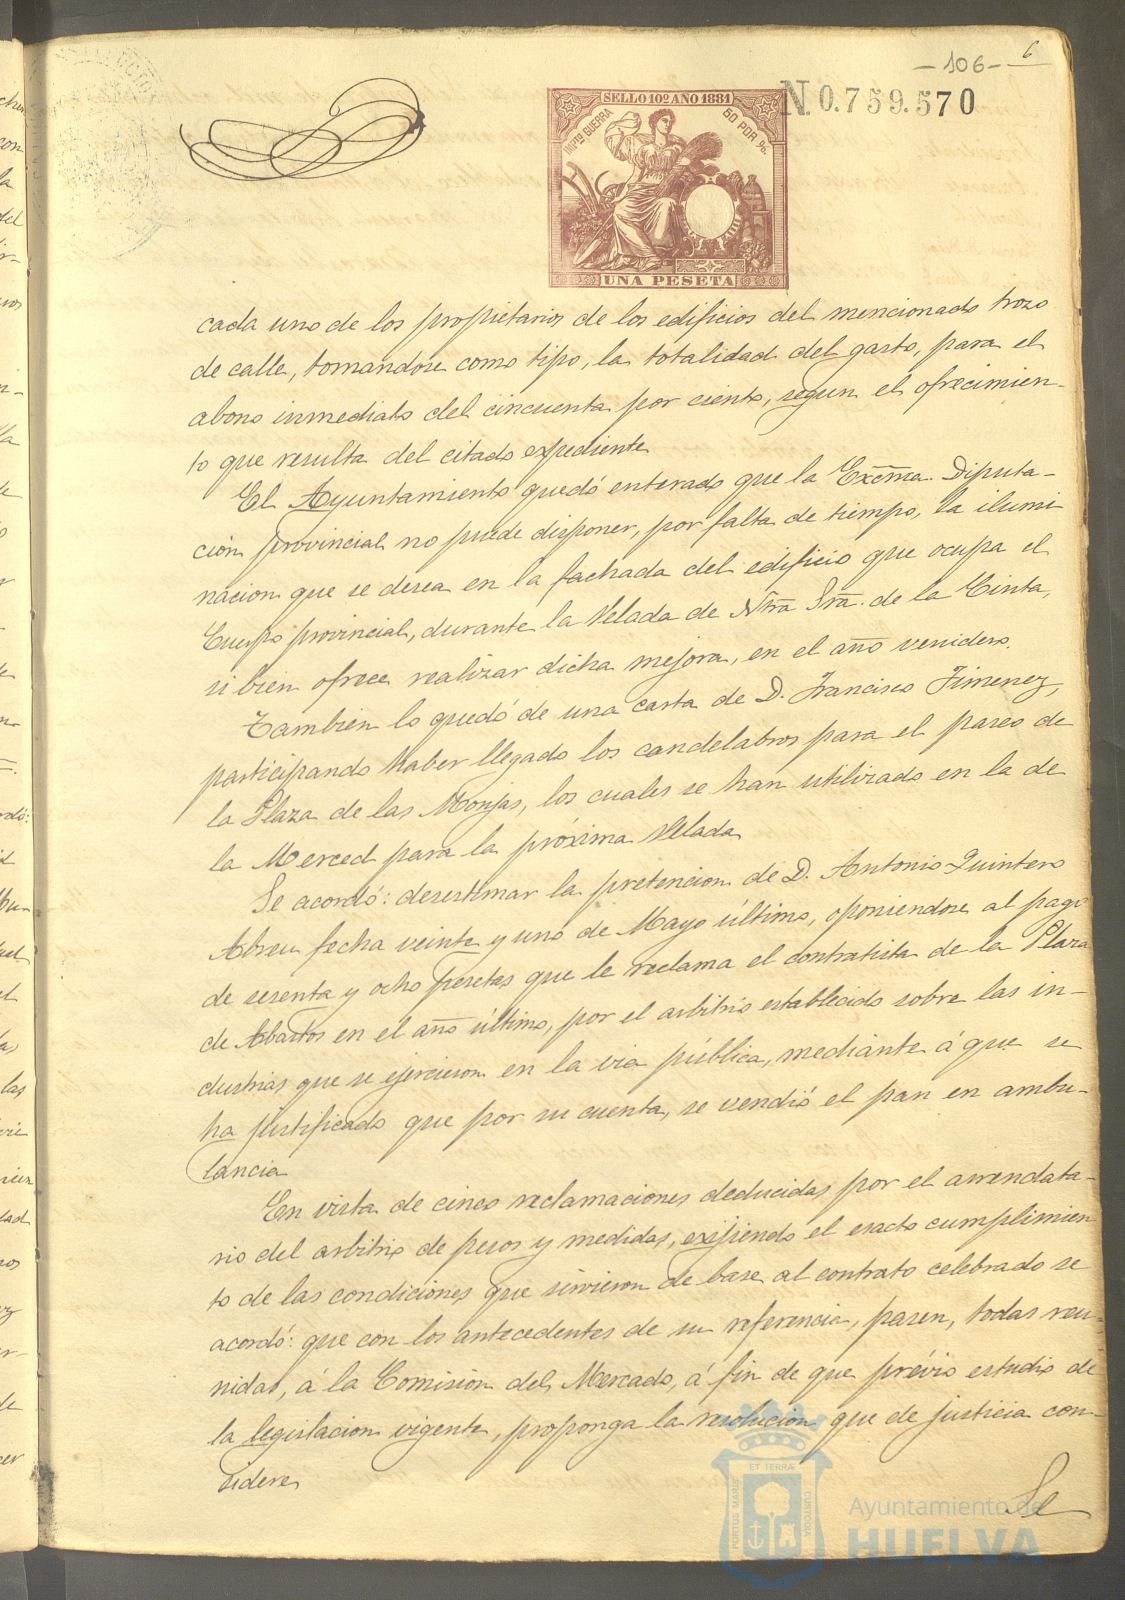 6
- 106 -
SELLO 10º AÑO 1881
IMPTO GUERRA
50 POR %
N. 0.759.570
UNA PESETA
cada uno de los propietarios de los edificios del mencionado trozo
de calle, tomandose como tipo, la totalidad del gasto, para el
abono inmediato del cincuenta por ciento, segun el ofrecimien-
to que resulta del citado expediente
El Ayuntamiento quedó enterado que la Excma. Diputa-
ción provincial no puede disponer, por falta de tiempo, la ilumi
nacion que se desea en la fachada del edificio que ocupa el
Cuerpo provincial, durante la Velada de Ntra Sra. de la Cinta,
si bien ofrece realizar dicha mejora, en el año venidero.
Tambien lo quedó de una carta de D. Francisco Jimenez,
participando haber llegado los candelabros para el paseo de
la Plaza de las Monjas, los cuales se han utilizado en la de
la Merced para la próxima Velada
Se acordó: desestimar la pretencion de D. Antonio Quintero
Abreu fecha veinte y uno de Mayo último, oponiendose al pago
de sesenta y ocho pesetas que le reclama el contratista de la Plaza
de Abastos en el año último, por el arbitrio establecido sobre las in-
dustrias que se ejercieron en la via pública, mediante á que se
ha justificado que por su cuenta, se vendió el pan en ambu-
lancia
En vista de cinco reclamaciones deducidas por el arrendata-
rio del arbitrio de pesos y medidas, exijiendo el exacto cumplimien
to de las condiciones que sirvieron de base al contrato celebrado se
acordó: que con los antecedentes de su referencia, pasen, todas reu-
nidas, á la Comision del Mercado, á fin de que prévio estudio de
la legislacion vigente, proponga la resolucion que de justicia con-
sidere
Se
ET TERRÆ
PORTUS MARIS
CUSTODIA
Ayuntamiento de
HUELVA